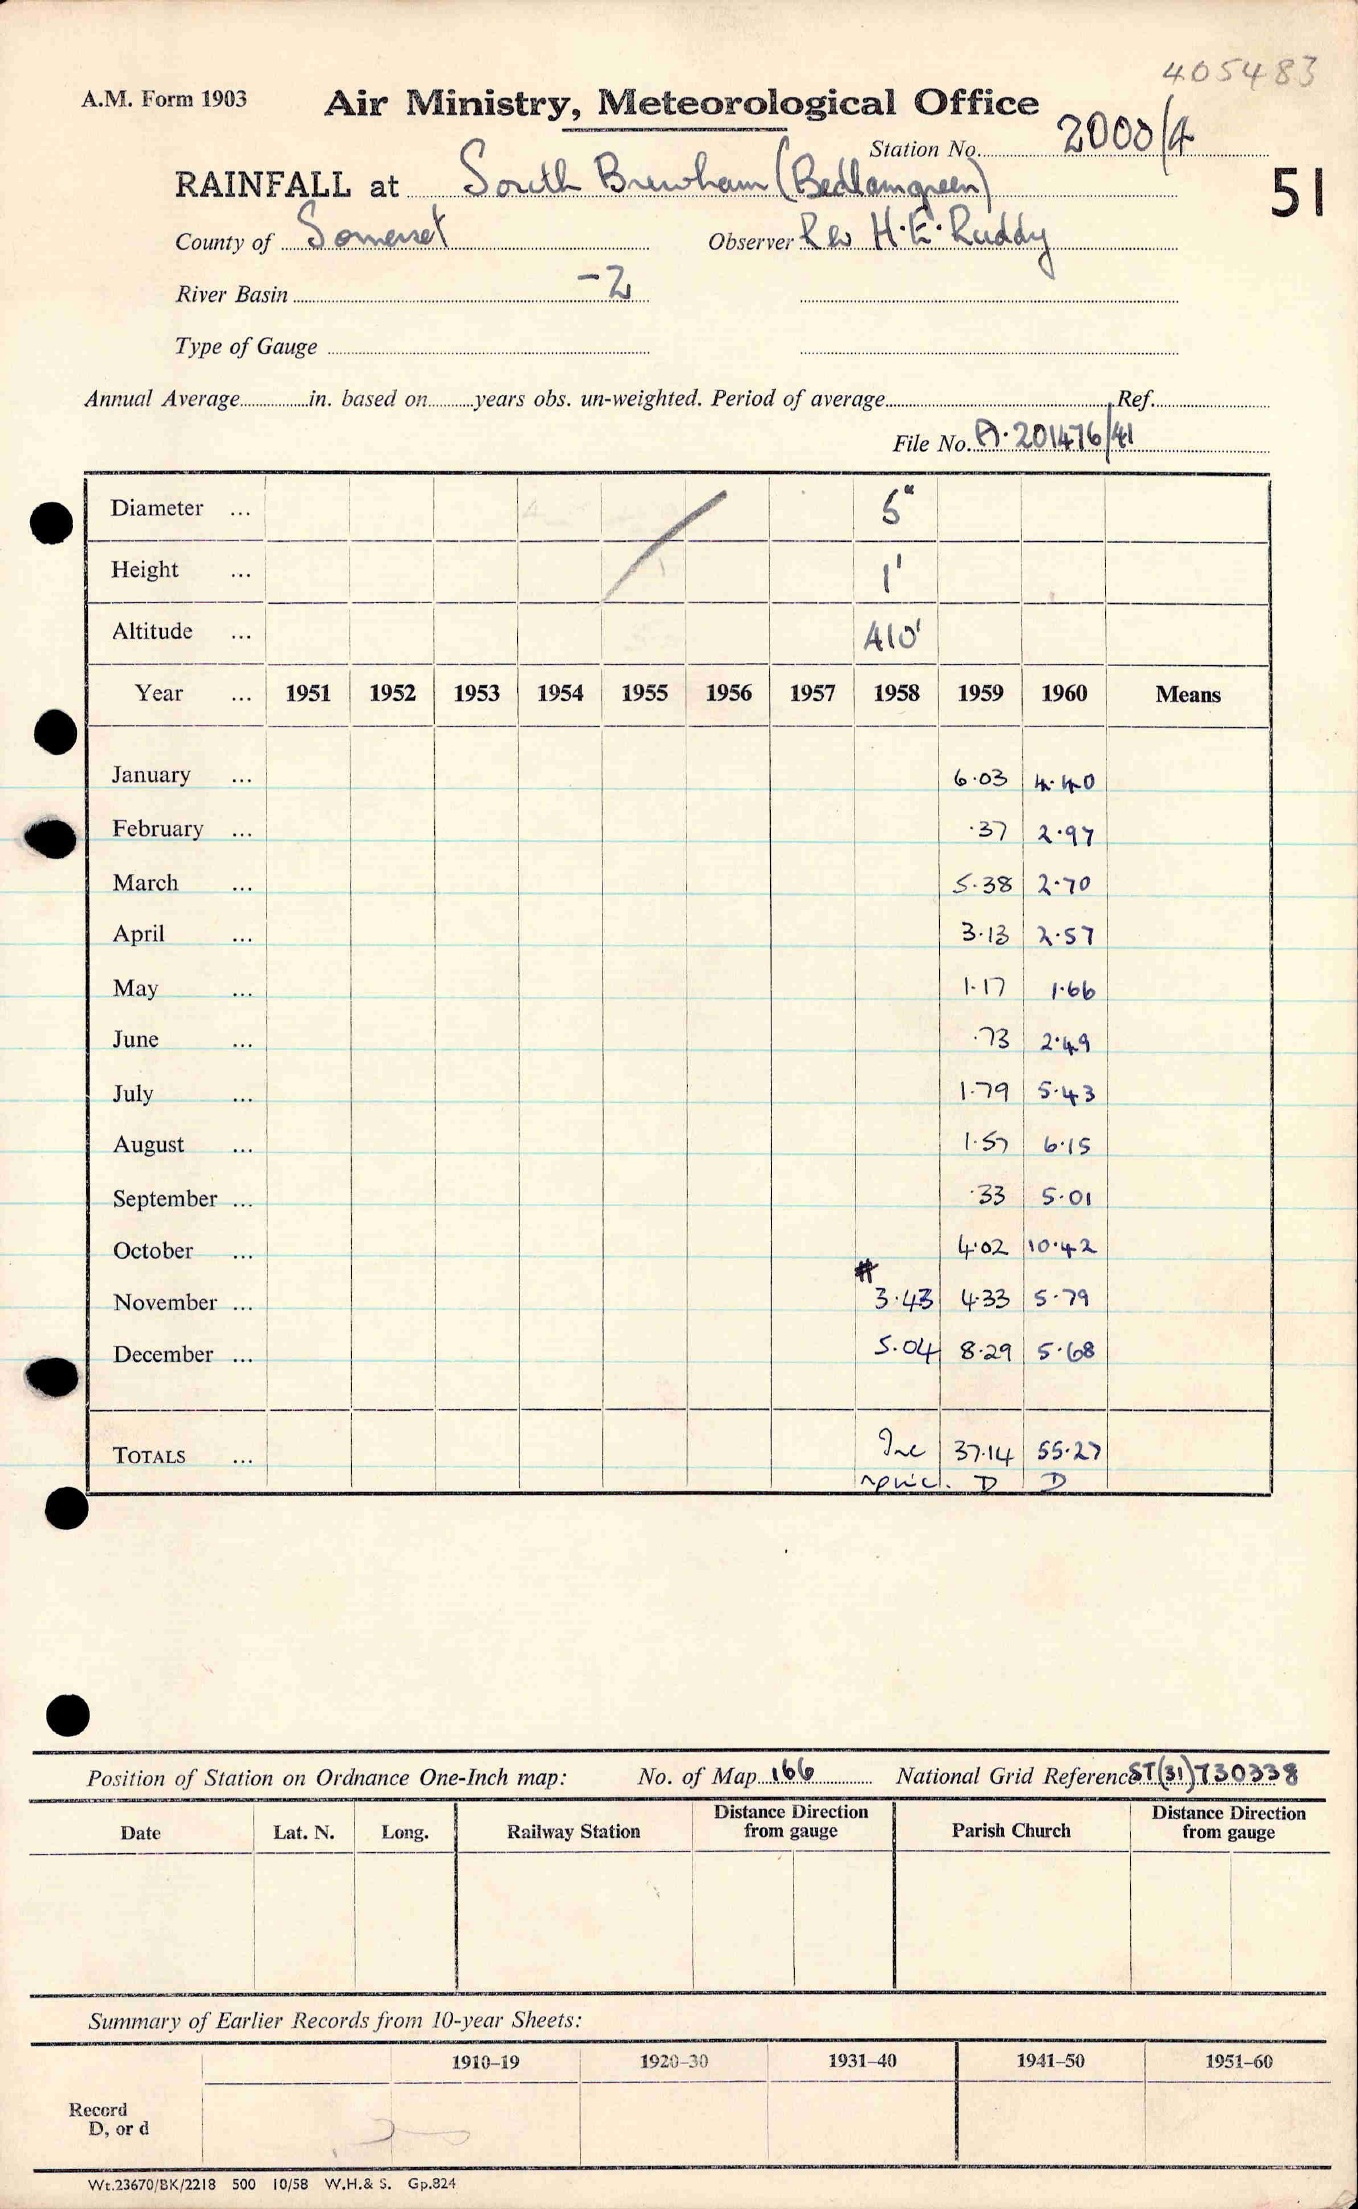 405483
A.M. Form 1903 Air Ministry, Meteorological Office
Station No. 2000/4
RAINFALL at South Brewham (Bedlamgreen) 51
County of Somerset Observer Rev H.E. Ruddy
River Basin -2
Type of Gauge
Annual Average in. based on years obs. un-weighted. Period of average Ref.
File No. A.201476/41
Diameter ... 5"
Height ... 1'
Altitude ... 410'
Year ... 1951 1952 1953 1954 1955 1956 1957 1958 1959 1960 Means
January ... 6.03 4.40
February ... .37 2.97
March ... 5.38 2.70
April ... 3.13 2.57
May ... 1.17 1.66
June ... .73 2.49
July ... 1.79 5.43
August ... 1.57 6.15
September ... .33 5.01
October ... 4.02 10.42
November ... # 3.43 4.33 5.79
December ... 5.04 8.29 5.68
TOTALS ... Inc 37.14 55.27
D D
Position of Station on Ordnance One-Inch map: No. of Map 166 National Grid Reference ST(31)730338
Date Lat. N. Long. Railway Station Distance Direction from gauge Parish Church Distance Direction from gauge
Summary of Earlier Records from 10-year Sheets:
1910–19 1920–30 1931–40 1941–50 1951–60
Record
D, or d
Wt.23670/BK/2218 500 10/58 W.H.& S. Gp.824